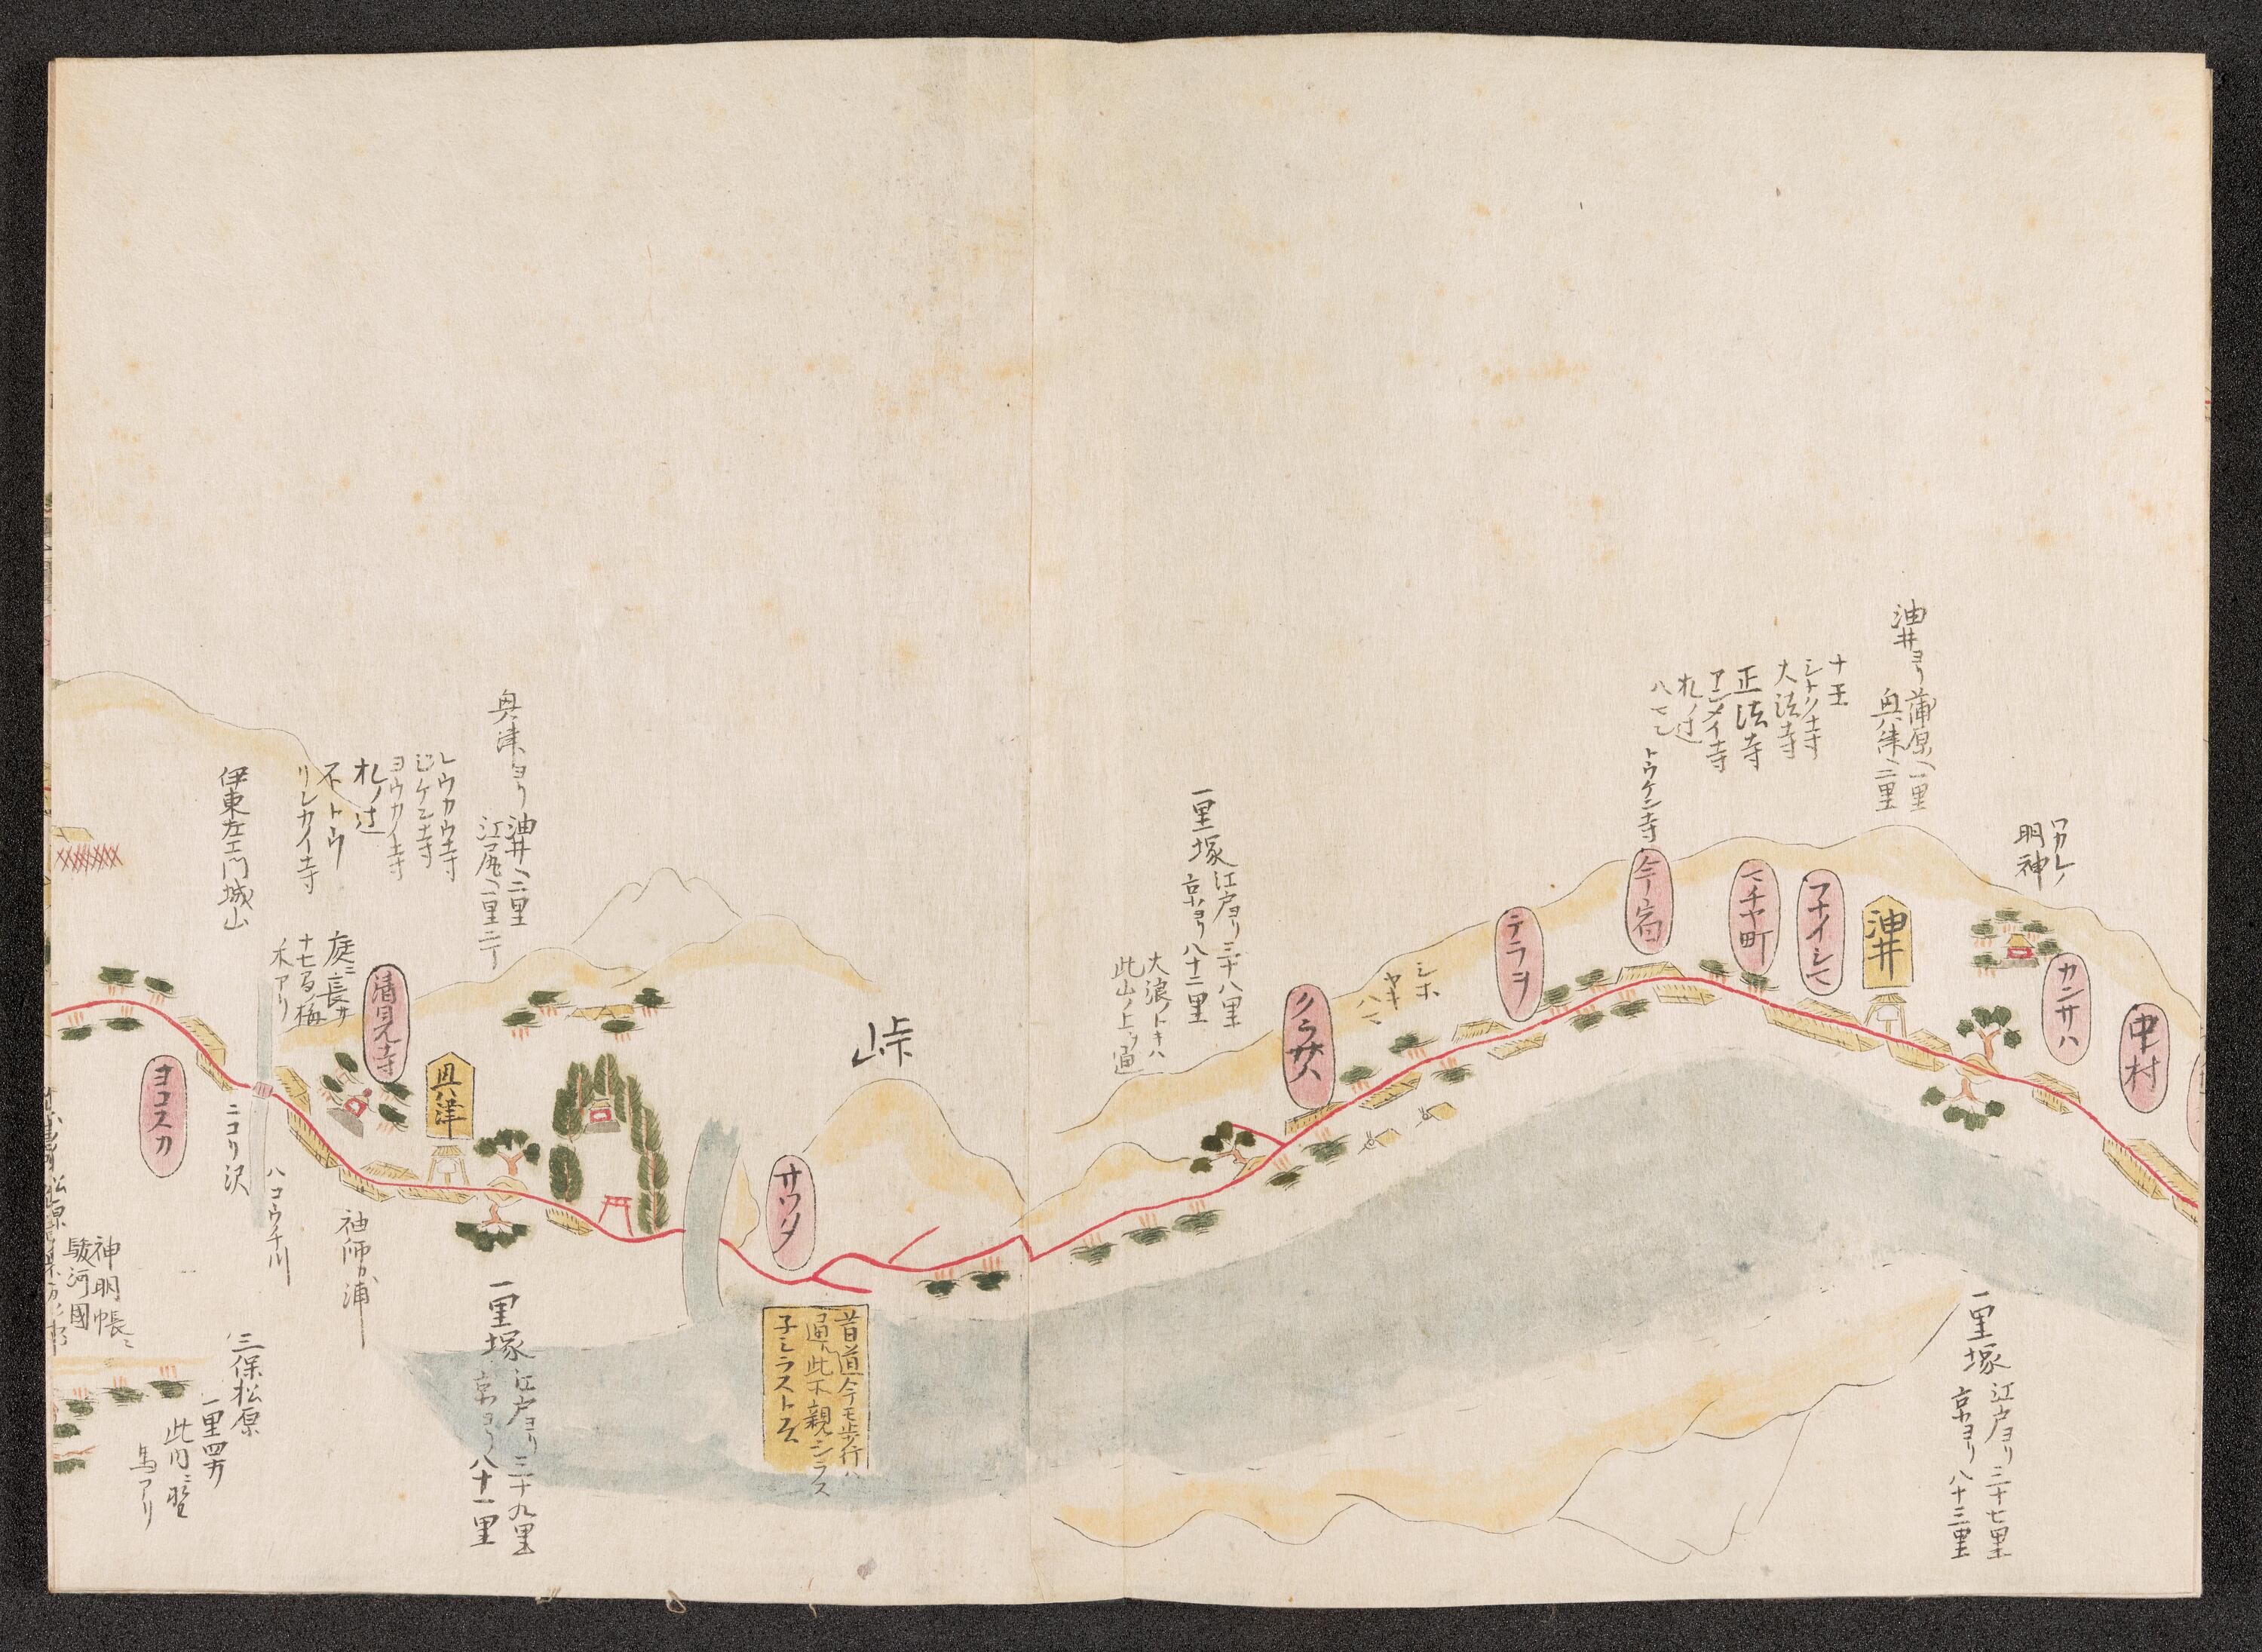 油井ヨリ
蒲原ヘ一里
奥津ヘ二里
ワカレノ
明神
中村
カンサハ
油井
フナイシマ
マチヤ町
今宿
テラヲ
クラサハ
十王
大法寺
正法寺
札ノ辻
トウケン寺
シホ
ヤキ
ハマ
一里塚
江戸ヨリ三十八里
京ヨリ八十二里
大浪ノトキハ
此山ノ上ヲ通
一里塚
江戸ヨリ三十七里
京ヨリ八十三里
峠
サツタ
昔道今モ歩行ハ
通ル此不親シラス
子シラスト云
奥津ヨリ
油井ヘ二里
江尻ヘ一里二丁
奥津
清見寺
レウカウ寺
ヨウカイ寺
札ノ辻
不トウ
リンカイ寺
庭ニ長サ
木アリ
伊東左エ門城山
ヨコスカ
ニコリ沢
袖師カ浦
一里塚
江戸ヨリ三十九里
京ヨリ八十一里
神明帳ニ
駿河國
三保松原
此内ニ野
馬アリ